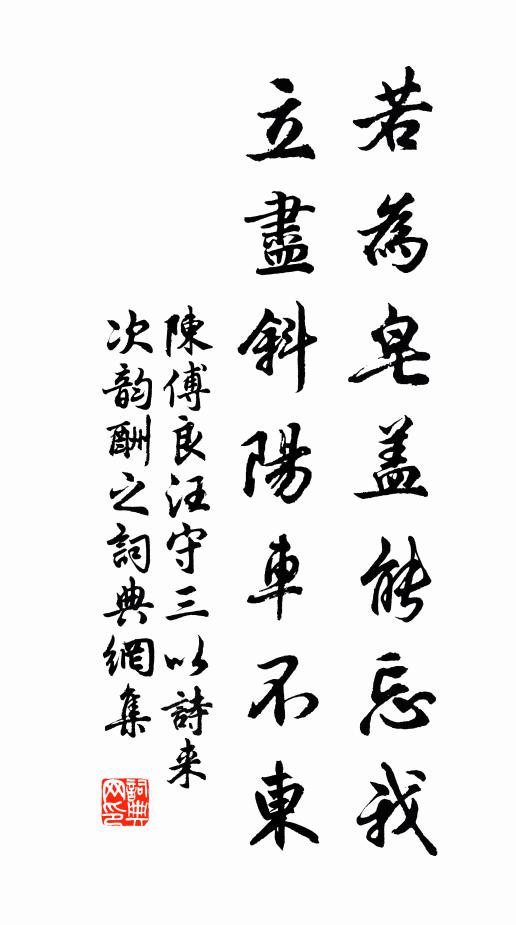 若為皂盖能忘我
立盡斜陽車不東
陳傅良汪守三以詩来
次韵酬之詞典網集
詞典
网印